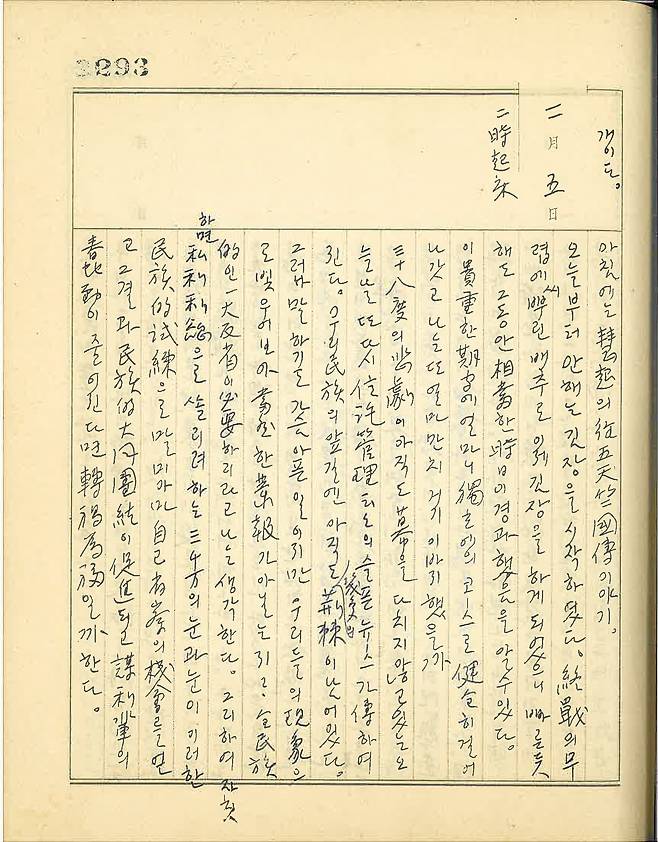 3293
개이다。
十二月五日
二時起床
아침에는 慧超의 往五天竺國傳 이야기。
오늘부터 안해는 김장을 시작하였다。終戰의 무
렵에 씨 뿌린 배추로 이제 김장을 하게 되었으니 빠른듯
해도 그동안 相當한 時日이 경과했음을 알 수 있다。
이 貴重한 期間에 얼마나 獨立에의 코스로 健全히 걸어
나갔고 나는 또 얼마만치 거기 이바지했을까
三十八度의 悲劇이 아직도 幕을 다치지 않고 있는 오
늘날 또다시 信託管理 되느니의 슬픈 뉴스가 傳하여
진다。우리 民族의 앞길엔 아직도 幾多의 荊棘이 남어있다。
그러나 말하기도 가슴아픈 일이지만 우리들의 現象으
로 빛우어보아 當然한 業報가 아닐는지? 全民族
的인 一大反省이 必要하리라고 나는 생각한다。그리하여 자칫
하면 私利私慾으로 쏠리려하는 三千万의 눈과 눈이 이러한
民族的 試練으로 말미아마 自己省察의 機會를 얻
고 그 결과 民族的 大同團結이 促進되고 謀利輩의
蠢動이 줄어진다면 轉禍爲福일까 한다。